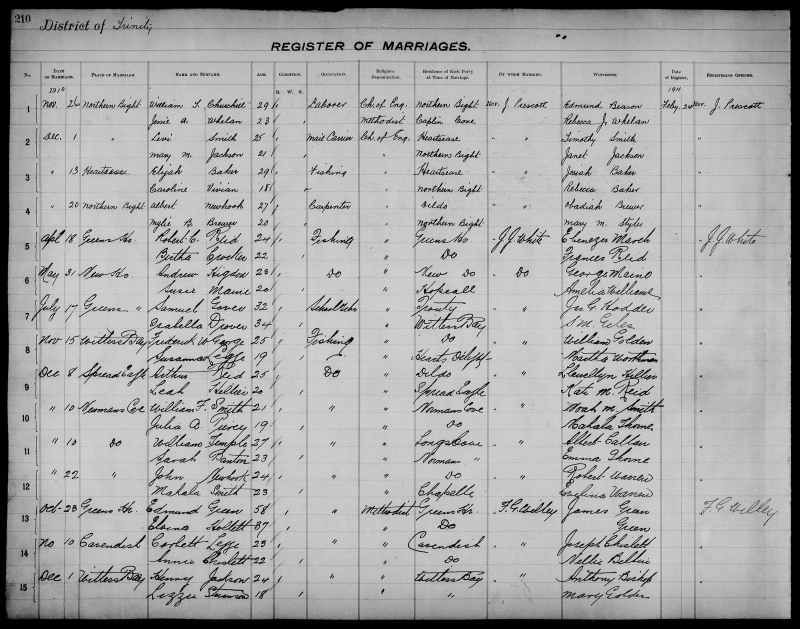 210
District of Trinity
REGISTER OF MARRIAGES.
No. DATE OF MARRIAGE. PLACE OF MARRIAGE. NAME AND SURNAME. AGE. CONDITION. OCCUPATION. Religious Denomination. Residence of Each Party at Time of Marriage. BY WHOM MARRIED. WITNESSES. Date of Register. REGISTERING OFFICER.
1910 B. W. S. 1911
1 Nov. 26 Northern Bight William T. Churchill 29 Laborer Ch. of Eng. Northern Bight Rev. J. Prescott Edmund Beason Feby. 24 Rev. J. Prescott
Jessie A. Whelan 23 Methodist Caplin Cove Rebecca J Whelan
2 Dec. 1 " Levi Smith 25 Mail Carrier Ch. of Eng. Heartsease " " Timothy Smith "
Mary M. Jackson 21 " Northern Bight Janet Jackson
3 " 13 Heartsease Elijah Baker 29 Fishing " Heartsease " " Josiah Baker "
Caroline Vivian 18 " Northern Bight Rebecca Baker
4 " 20 Northern Bight Albert Newhook 27 Carpenter " Dildo " " Obadiah Brewer "
B. Brewer 20 " Northern Bight Mary M. Styles
5 Apl 18 Greens Hr. Robert C. Reid 24 Fishing " Greens Hr " J.J. White Ebenezer March " J.J. White
Bertha Crocker 22 " Do Frances Reid
6 May 31 New Hr. Andrew Higdon 23 Do " New Do " Do George
Susie 20 " Hopeall Amelia Williams
7 July 17 Greens " Samuel Gover 32 " Trouty " " Jas. G. Hodder
Isabella Drover 34 " Witless Bay S.M. Giles
8 Nov 15 Witless Bay Frederick W George 25 Fishing " Do " " William Golden
Susannah Legge 19 " Hearts Delight Martha
9 Dec 8 Spread Eagle Arthur Reid 25 Do " Dildo " " Llewellyn Hillier
Leah Hillier 20 " Spread Eagle Kate M. Reid
10 " 10 Newmans Cove William F. Smith 21 " " Normans Cove " " Noah M. Smith
Julia A. 19 " Do Mahala Thorne
11 " 10 Do William Temple 27 " " Long Cove " " Albert
Sarah 23 " Normans " Emma Thorne
12 " 22 " John Newhook 24 " " Do " " Robert Warren
Mahala Smith 23 " Chapelle Warren
13 Oct 23 Greens Hr. Edmund Green 58 " Methodist Greens Hr. F.G. Willey James Green F.G. Willey
Hollett 37 " Do Green
14 No 10 Cavendish Corbett Legge 23 " " Cavendish " " Joseph Chislett
Annie Chislett 22 " Do Nellie
15 Dec 1 Witless Bay Henry Jackson 24 " " Witless Bay " " Anthony Bishop
Lizzie 18 " " Mary Golden